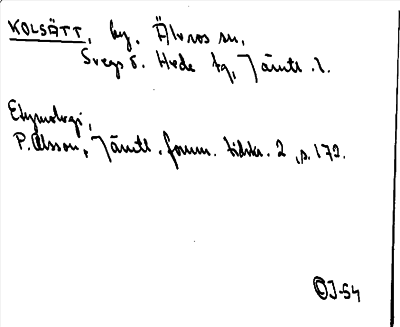 KOLSÄTT, by. Älvros sn,
Svegs o. Hede tg, Jämtl. l.
Etymologi,
P. Olsson, Jämtl. fornm. tidskr. 2, s. 172.
OJ-54